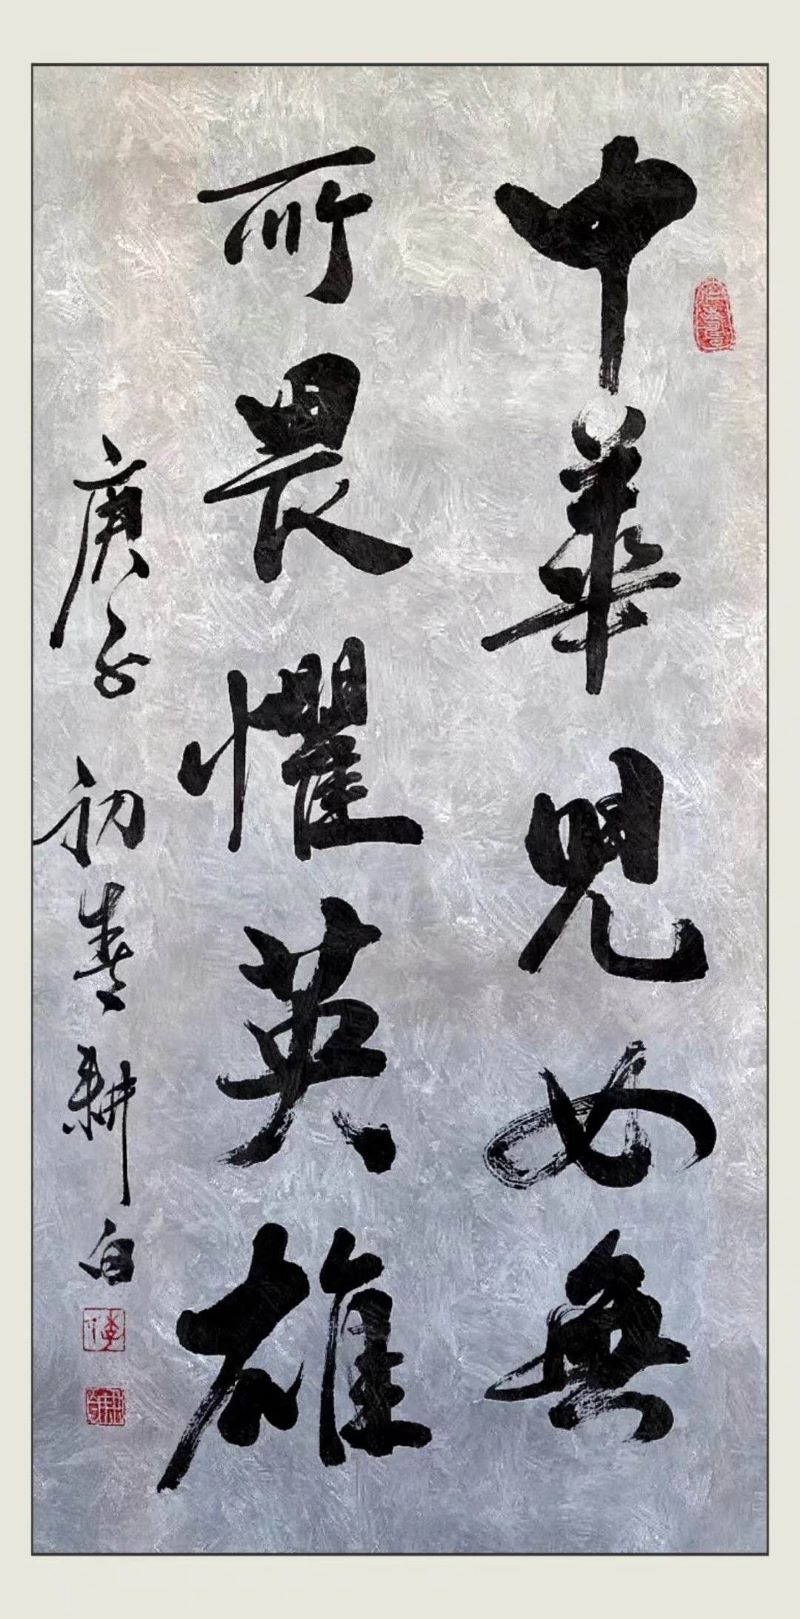 中華兒女無
所畏懼英雄
庚子初春耕白